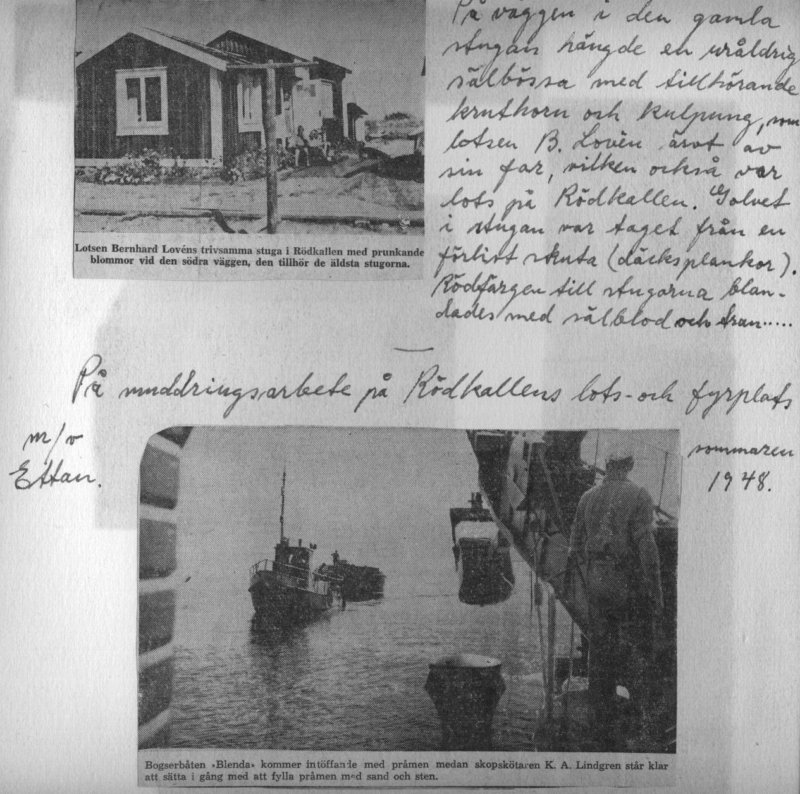 På väggen i den gamla
stugan hängde en uråldrig
sälbössa med tillhörande
kruthorn och kulpung, som
lotsen B. Lovén ärvt av
sin far, vilken också var
lots på Rödkallen. Golvet
i stugan var taget från en
förlist skuta (däcksplankor).
Rödfärgen till stugorna blan-
dades med sälblod och tran.....
Lotsen Bernhard Lovéns trivsamma stuga i Rödkallen med prunkande
blommor vid den södra väggen, den tillhör de äldsta stugorna.
På muddringsarbete på Rödkallens lots- och fyrplats
m/v
Ettan.
sommaren
1948.
Bogserbåten »Blenda» kommer intöffande med pråmen medan skopskötaren K. A. Lindgren står klar
att sätta i gång med att fylla pråmen med sand och sten.